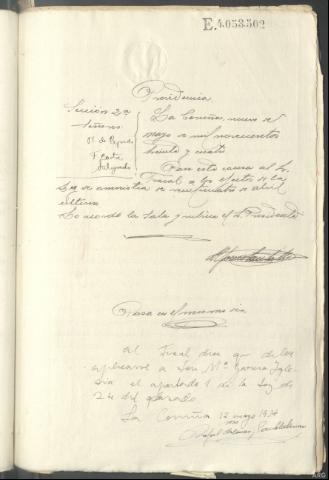 E.4.053.502
Providencia
Sección 2ª
Señores
La Coruña, nueve de
mayo de mil novecientos
treinta y cuatro
Pase esta causa al Sr.
Fiscal a los efectos de la
Ley de amnistía de veinticuatro de abril
último
Lo acordó la Sala y rubrica el Sr. Presidente
Pasa en el mismo día
El Fiscal dice que debe
aplicarse a José Mª García Igle-
sia el apartado 1 de la Ley de
24 del pasado
La Coruña 12 mayo 1934